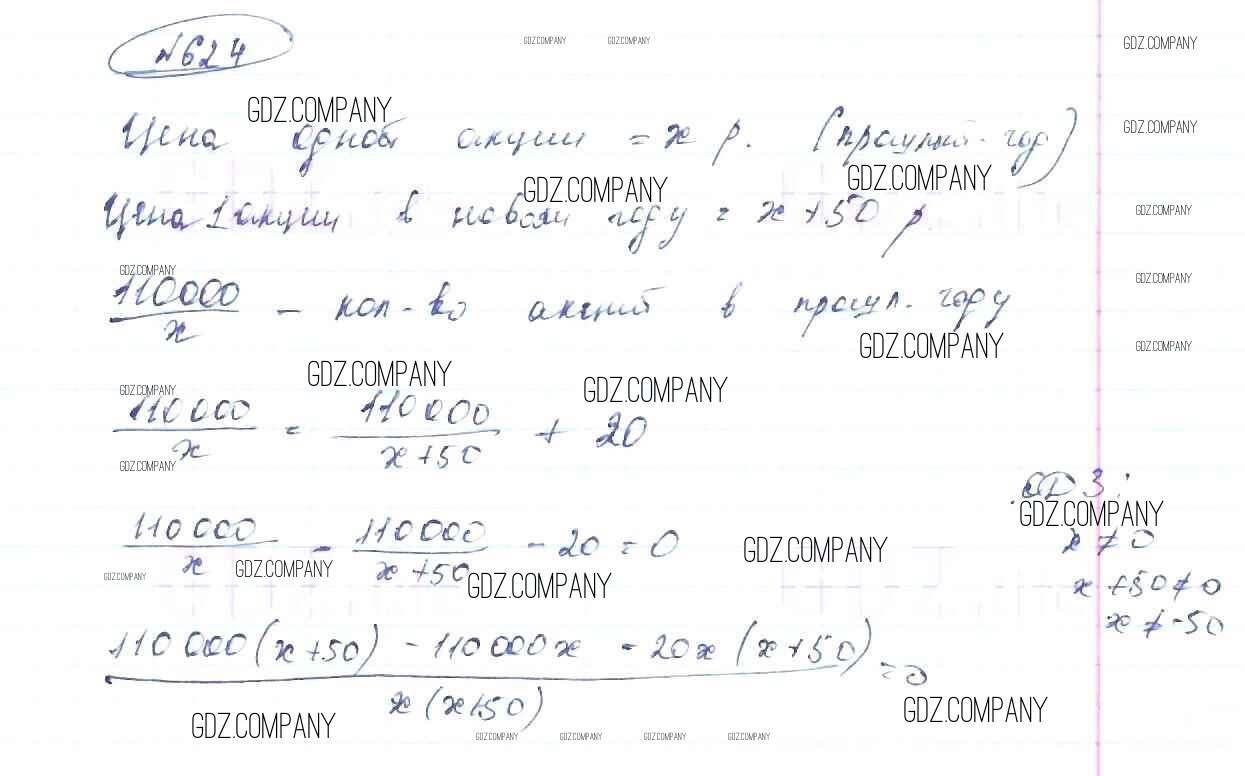 №624
GDZ.COMPANY GDZ.COMPANY GDZ.COMPANY
GDZ.COMPANY
Цена одной акции = x р. (прошлый год)
GDZ.COMPANY
GDZ.COMPANY GDZ.COMPANY
Цена 1 акции в новом году = x + 50 р.
GDZ.COMPANY
GDZ.COMPANY GDZ.COMPANY
110000/x - кол-во акций в прошл. году
GDZ.COMPANY GDZ.COMPANY
GDZ.COMPANY GDZ.COMPANY GDZ.COMPANY
110 000/x = 110 000/(x + 50) + 20
GDZ.COMPANY
ОДЗ:
GDZ.COMPANY
x ≠ 0
x + 50 ≠ 0
x ≠ -50
110 000/x - 110 000/(x + 50) - 20 = 0
GDZ.COMPANY
GDZ.COMPANY GDZ.COMPANY GDZ.COMPANY
(110 000(x + 50) - 110 000x - 20x(x + 50))/(x(x + 50)) = 0
GDZ.COMPANY GDZ.COMPANY
GDZ.COMPANY GDZ.COMPANY GDZ.COMPANY GDZ.COMPANY